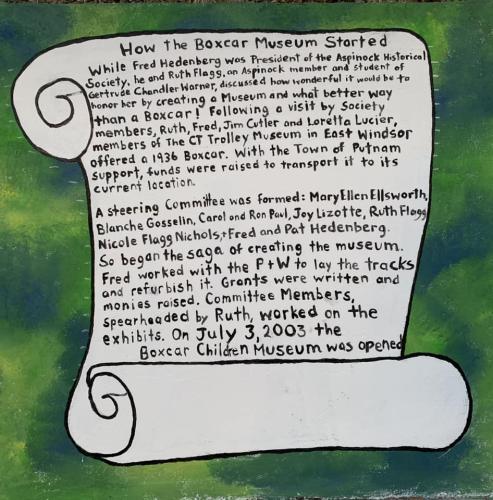 How the Boxcar Museum Started
While Fred Hedenberg was President of the Aspinock Historical
Society, he and Ruth Flagg, an Aspinock member and student of
Gertrude Chandler Warner, discussed how wonderful it would be to
honor her by creating a Museum and what better way
than a Boxcar! Following a visit by Society
members, Ruth, Fred, Jim Cutler and Loretta Lucier,
members of The CT Trolley Museum in East Windsor
offered a 1936 Boxcar. With the Town of Putnam
support, funds were raised to transport it to its
current location.
A steering Committee was formed: MaryEllen Ellsworth,
Blanche Gosselin, Carol and Ron Paul, Joy Lizotte, Ruth Flagg
Nicole Flagg Nichols,+Fred and Pat Hedenberg.
So began the saga of creating the museum.
Fred worked with the P+W to lay the tracks
and refurbish it. Grants were written and
monies raised. Committee Members,
spearheaded by Ruth, worked on the
exhibits. On July 3,2003 the
Boxcar Children Museum was opened